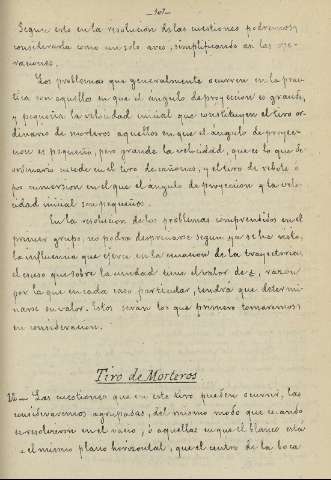 -107-
Segun esto en la resolución de las cuestiones podremos
considerarla como un solo arco, simplificando en las ope-
raciones.
Los problemas que generalmente ocurren en la prac-
tica son aquellos en que el ángulo de proyección es grande,
y pequeña la velocidad inicial que constituyen el tiro or-
dinario de morteros aquellos en que el ángulo de proyec-
cion es pequeño, pero grande la velocidad, que es lo que de
ordinario sucede en el tiro de cañones, y el tiro de rebote ó
por inmersion en el que el ángulo de proyeccion y la velo-
cidad inicial son pequeños.
En la resolucion de los problemas comprendidos en el
primer grupo, no podrá despreciarse segun ya se ha visto,
la influencia que ejerce en la ecuacion de la trayectoria,
el esceso que sobre la unidad tiene el valor de, razon
por la que en cada caso particular, tendrá que determi-
narse su valor. Estos serán los que primero tomaremos
en consideracion.
Tiro de Morteros
Las cuestiones que en este tiro pueden ocurrir, las
consideraremos agrupadas, del mismo modo que cuando
se resolvieron en el vacio, ó aquellas en que el blanco está
el mismo plano horizontal, que el centro de la boca